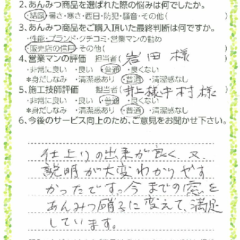 2.あんみつ商品を選ばれた際の悩みは何でしたか。
結露・寒さ・暑さ・西日・防犯・騒音・その他(
3.あんみつ商品をご購入頂いた最終判断は何ですか。
性能・ブランド・クチコミ・営業マンの勧め
販売店の信用・その他(
4.営業マンの評価 担当者(岩田様
・非常に良い・良い・普通・良くない
*身だしなみ ・清潔感あり・普通・清潔感なし
5.施工技術評価 担当 井上様中村様
・非常に良い・良い・普通・良くない
*身だしなみ ・清潔感あり・普通・清潔感なし
6.今後のサービス向上のため、ご意見をお聞かせ下さい。
仕上りの出来が良く、又
説明が大変わかりやす
かったです。今までの窓を
あんみつ硝子に変えて、満足
しています。